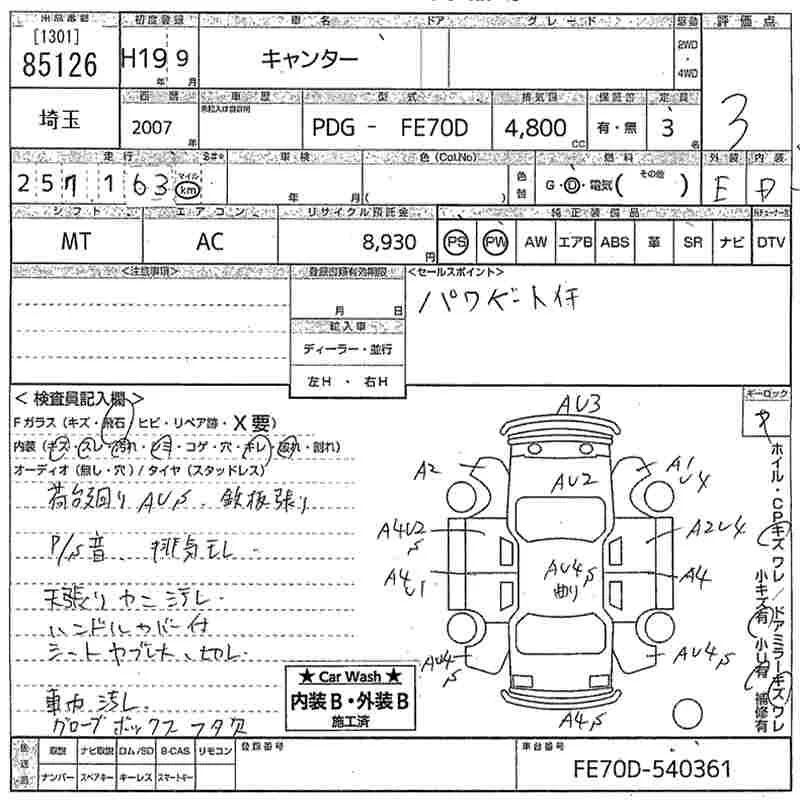 出品番号 初度登録 車名 ドア グレード 駆動 評価点
[1301]
85126 H19 9 キャンター 2WD・4WD 3
年 月
埼玉 西暦 車歴 型式 排気量 保証書 定員
2007年 PDG - FE70D 4,800cc 有・無 3名
走行 車検 色(Col.No) 燃料 外装 内装
257163 マイル km 年 月 ( ) 色替 G・D・電気( その他 ) E D
シフト エアコン リサイクル預託金 純正装備品
MT AC 8,930円 PS PW AW エアB ABS 革 SR ナビ DTV
<注意事項> 登録書類有効期限 <セールスポイント>
月 日 パワゲート付
輸入車
ディーラー・並行
左H ・ 右H
<検査員記入欄> キーロック
Fガラス(キズ・飛石・ヒビ・リペア跡・X要)
内装(キズ・スレ・汚れ・シミ・コゲ・穴・キレ・破れ・割れ)
オーディオ(無し・穴)/タイヤ(スタッドレス)
荷台廻り AUS、鉄板張り
P/S音、排気モレ
天張りヤニ汚レ
ハンドルカバー付
シートヤブレ大、切レ
車内汚レ
グローブボックスフタ欠
AU3
A2 AU2 A1 U4
A4U2S A2U4
A4 U1 AU4S 曲り A4
AU4S AU4S
A4S
ホイル・CPキズワレ/ドアミラーキズワレ
小キズ有 小凹有 補修有
★ Car Wash ★
内装B・外装B
施工済
後送品 取説 ナビ取説 ロム/SD B-CAS リモコン 登録番号 車台番号
ナンバー スペアキー キーレス スマートキー FE70D-540361